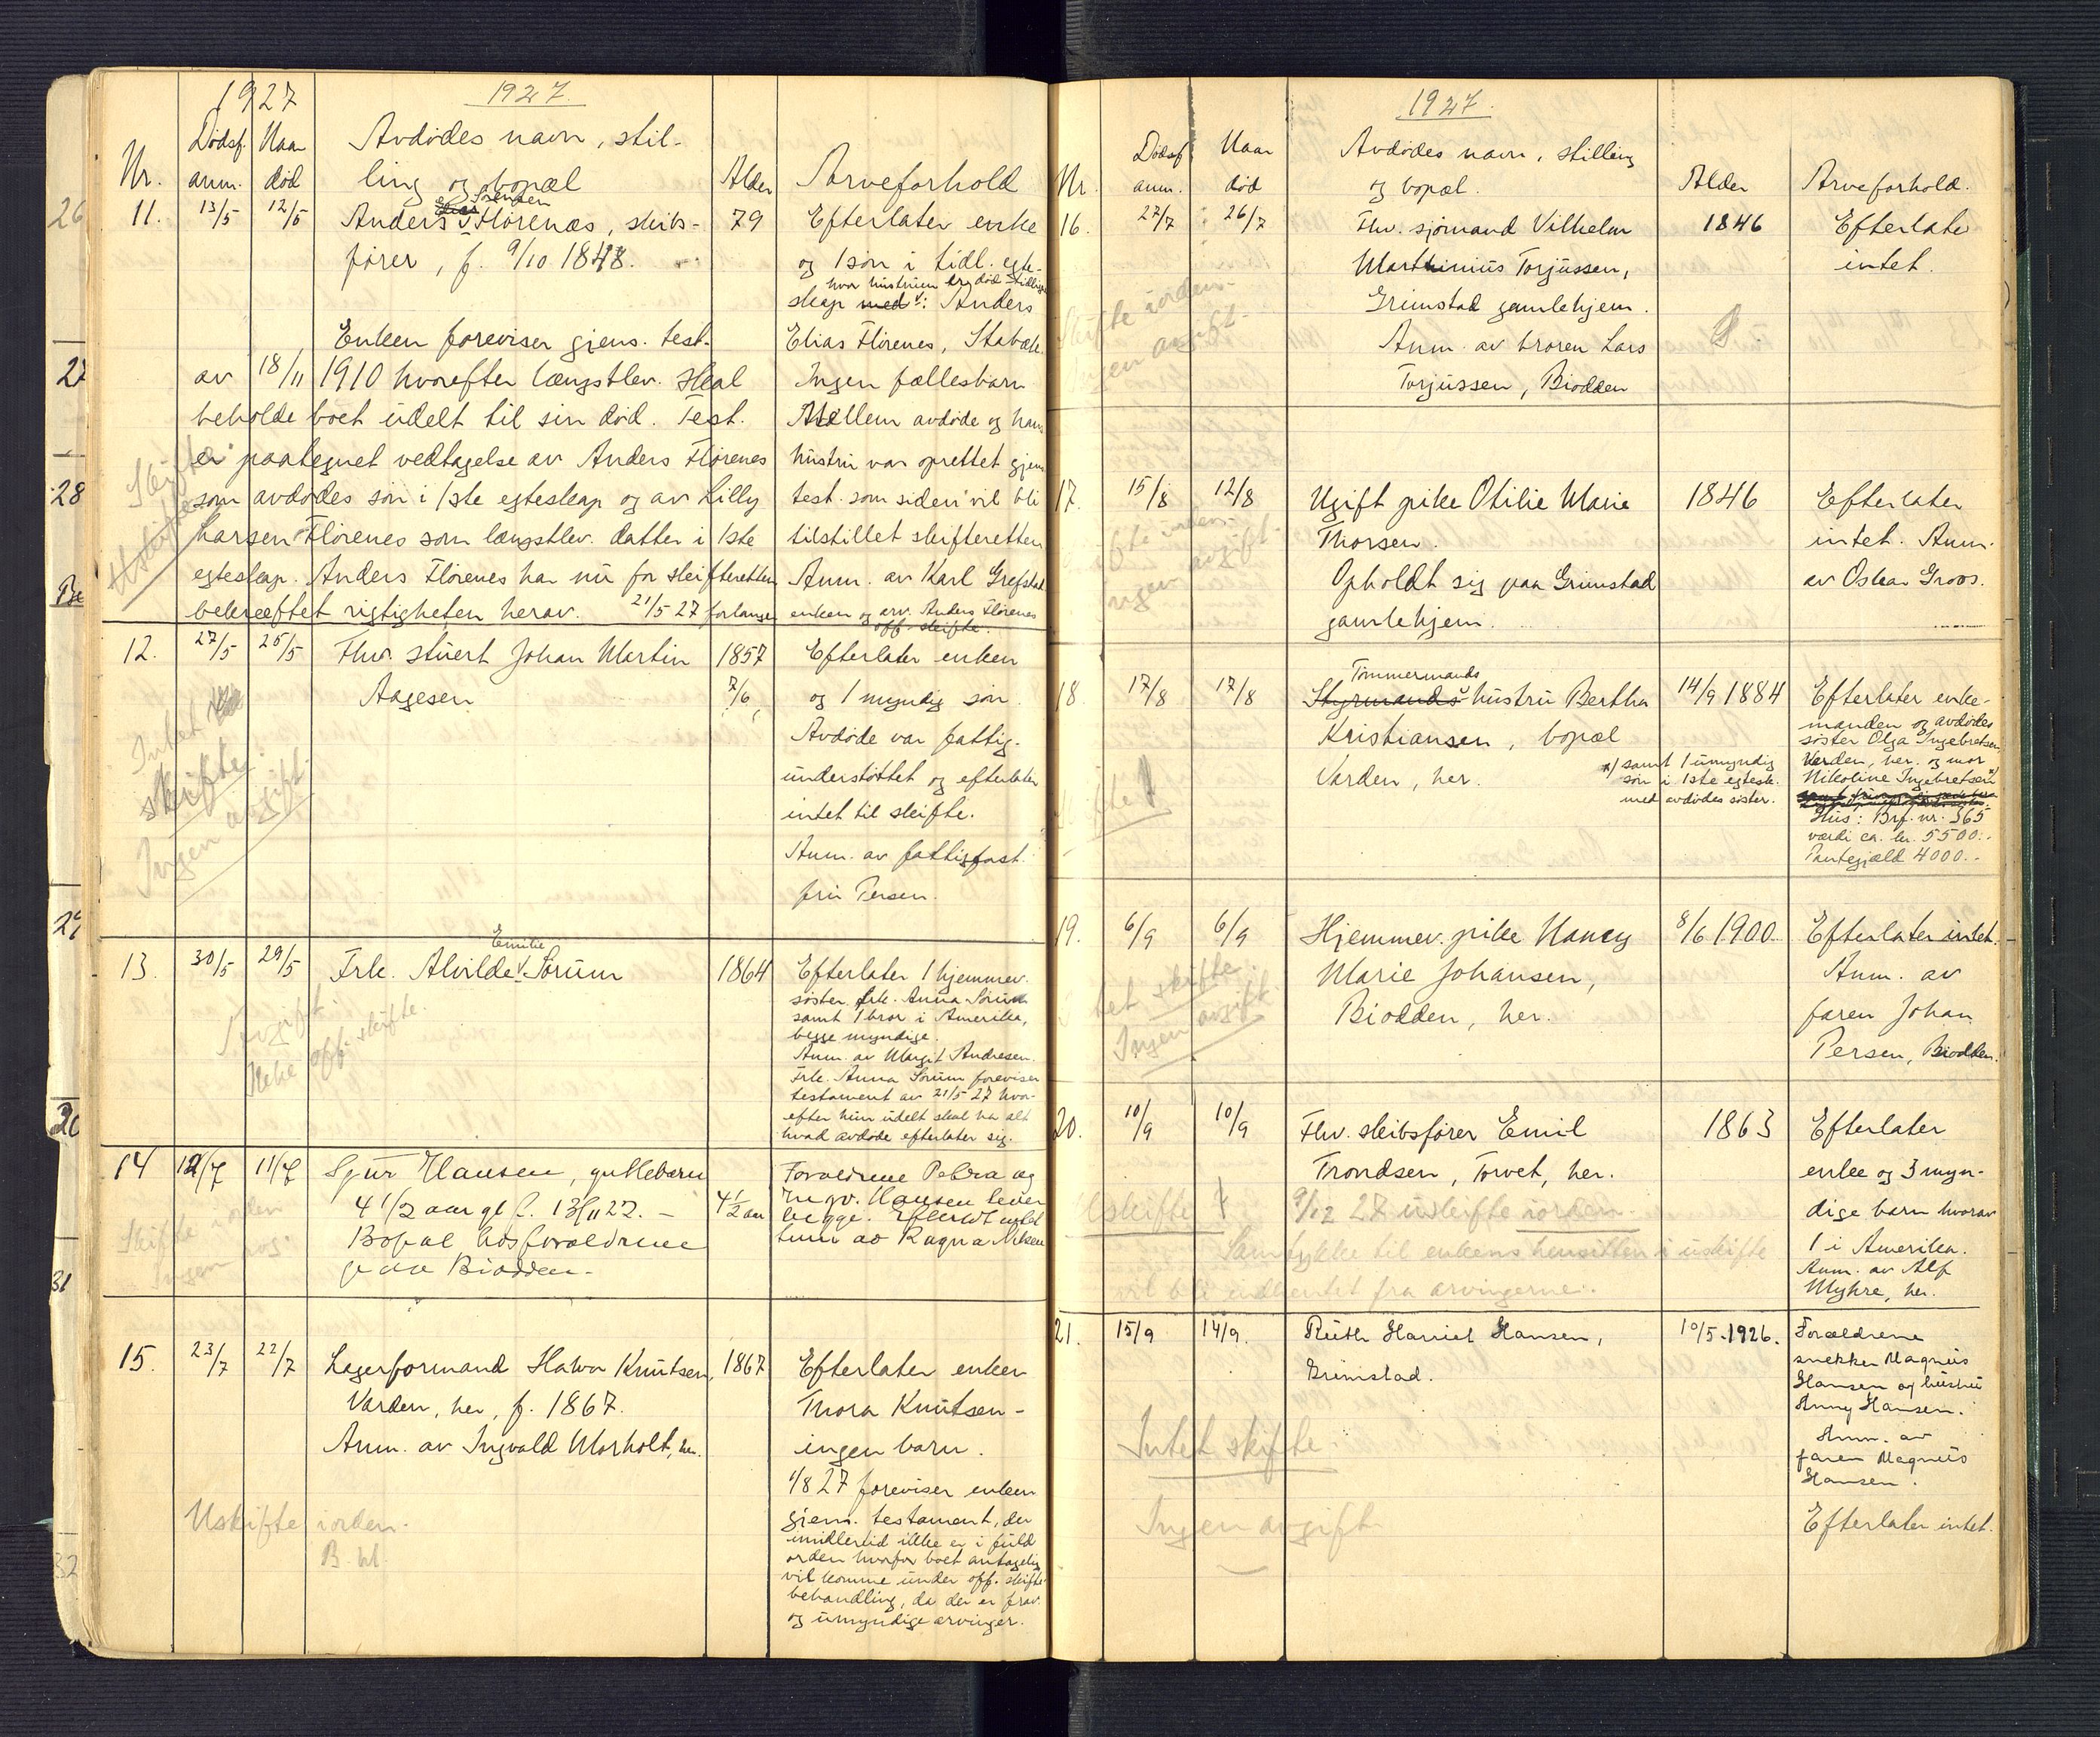 1927
1927.
Nr.
Dødsf. anm.
Naar død
Avdødes navn, stil-
ling og bopæl
Alder
Arveforhold
11.
13/5
12/5
Sørenden
Anders Flørenæs, skibs-
fører, f. 9/10 1848.
79
Efterlater enke
og 1 søn i tidl. egte-
hvor hustruen er død tidligere
skap med: Anders
Elias Flørenes, Stabæk.
Ingen fællesbarn
Mellem avdøde og hans
hustru var oprettet gjens.
test. som siden vil bli
tilstillet skifteretten
Anm. av Karl Grefstad
enken og arv. Anders Flørenes
off. skifte.
Enken foreviser gjens. test.
av 18/11 1910 hvorefter længstlev. skal
beholde boet udelt til sin død. Test.
er paategnet vedtagelse av Anders Flørenes
som avdødes søn i 1ste egteskap og av Lilly
Larsen Flørenes som længstlev. datter i 1ste
egteskap. Anders Flørenes har nu for skifteretten
bekræftet rigtigheten herav. 21/5 27 forlanger
12.
27/5
25/5
Fhv. stuert Johan Martin
Aagesen
1857
7/6
Efterlater enken
og 1 myndig søn
Avdøde var fattig-
understøttet og efterlater
intet til skifte.
Anm. av fattigforst.
fru Persen.
Intet
skifte.
Ingen avgift.
13.
30/5
29/5
Emilie
Frk. Alvilde Sørum
1864
Efterlater 1 hjemmev.
søster frk. Anna Sørum
samt 1 bror i Amerika,
begge myndige.
Anm. av Margit Andresen.
Frk. Anna Sørum foreviser
testament av 21/5 27 hvor-
efter hun udelt skal ha alt
hvad avdøde efterlater sig.
Avgift.
Ikke off. skifte.
14
12/7
11/7
Sgur Hansen, guttebarn
4 1/2 aar gl f. 13/11 22. -
Bopæl hos forældrene
paa Biodden.-
4 1/2 aar
Forældrene Petra og
Ingv. Hansen lever
begge. Efterlot intet
Anm av Ragna Nilsen
Skifte iorden
Ingen avg.
15.
23/7
22/7
Lagerformand Halvor Knutsen,
Varden, her, f. 1867.
Anm. av Ingvald Morholt, her.
1867
Efterlater enken
Thora Knutsen -
ingen barn.
1/8 27 foreviser enken
gjens. testament, der
imidlertid ikke er i fuld
orden hvorfor boet antagelig
vil komme under off. skifte-
behandling, da der er frav.
og umyndige arvinger.
Uskifte iorden.
B. bl.
1927.
Nr.
Dødsf. anm.
Naar død
Avdødes navn, stilling
og bopæl.
Alder
Arveforhold.
16.
27/7
26/7
Fhv. sjømand Vilhelm
Marthinius Torjussen,
Grimstad gamlehjem.
Anm. av broren Lars
Torjussen, Biodden
1846
Efterlater
intet.
Skifte iorden.
Ingen avgift.
17.
15/8
12/8
Ugift pike Otilie Marie
Thorsen.
Opholdt sig paa Grimstad
gamlehjem.
1846
Efterlater
intet. Anm.
av Oskar Groos.
Skifte iorden.
Ingen avgift.
18
17/8
17/8
Tømmermands
Styrmands hustru Bertha
Kristiansen, bopæl
Varden, her.
14/9 1884
Efterlater enke-
manden og avdødes
søster Olga Ingebretsen
Varden, her. og mor
Nikoline Ingebretsen x)
Hus: Brf. nr. 365
værdi ca. kr. 5500.-
Pantegjæld 4000.-
x) samt 1 umyndig
søn i 1ste egtesk.
med avdødes søster.
19.
6/9
6/9
Hjemmev. pike Nancy
Marie Johansen,
Biodden, her.
8/6 1900
Efterlater intet.
Anm. av
faren Johan
Persen, Biodden.
Intet skifte.
Ingen avgift.
20.
10/9
10/9
Fhv. skibsfører Emil
Trondsen, Torvet, her.
1863
Efterlater
enke og 3 myn-
dige barn hvorav
1 i Amerika.
Anm. av Alf
Myhre, her.
Uskifte
9/12 27 uskifte iorden.
Samtykke til enkens hensitten i uskifte
vil bli indhentet fra arvingerne.
21.
15/9
14/9.
Ruth Harriet Hansen,
Grimstad.
10/5-1926.
Forældrene
snekker Magnus
Hansen og hustru
Anny Hansen.
Anm. av
faren Magnus
Hansen.
Efterlater intet.
Intet skifte.
Ingen avgift
26
27
28
29
30
31
32